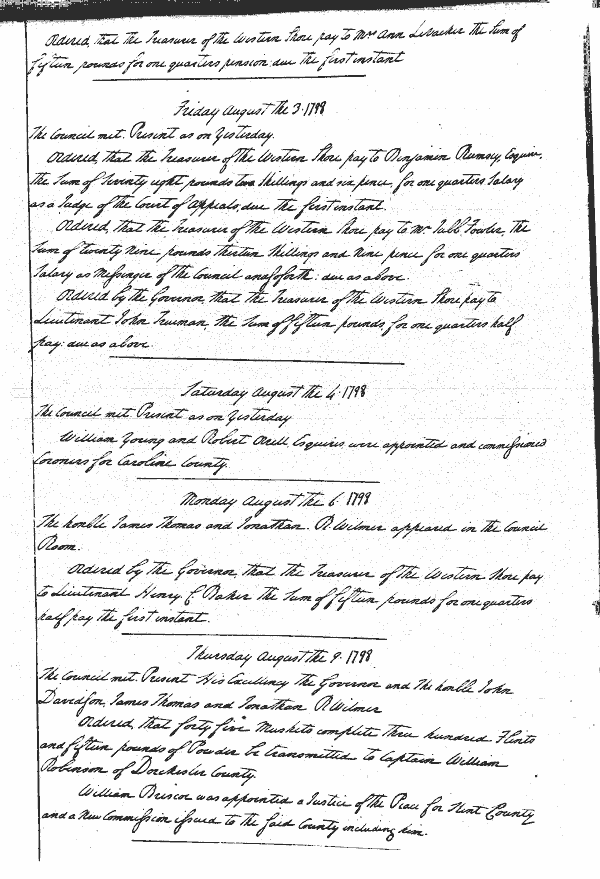 Ordered, that the Treasurer of the Western Shore pay to Mrs Ann the Sum of
fifteen pounds for one quarters pension due the first instant
Friday August the 3. 1798
The Council met. Present as on Yesterday.
Ordered, that the Treasurer of the Western Shore pay to Benjamin Rumsey, Esquire,
the Sum of Seventy eight pounds two Shillings and six pence, for one quarters Salary
as a Judge of the Court of Appeals, due the first instant.
Ordered, that the Treasurer of the Western Shore pay to Mr Jubb Fowler, the
Sum of twenty Nine pounds thirteen Shillings and Nine pence for one quarters
Salary as Messenger of the Council and so forth: due as above.
Ordered by the Governor, that the Treasurer of the Western Shore pay to
Lieutenant John Trueman, the Sum of fifteen pounds, for one quarters half
pay: due as above.
Saturday August the 4. 1798
The Council met. Present as on Yesterday
William Young and Robert Orrell Esquires, were appointed and commissioned
Coroners for Caroline County.
Monday August the 6. 1798
The honble James Thomas and Jonathan. R. Wilmer appeared in the Council
Room.
Ordered by the Governor, that the Treasurer of the Western Shore pay
to Lieutenant Henry C Baker the Sum of fifteen pounds for one quarters
half pay the first instant.
Thursday August the 9. 1798
The Council met. Present His Excellency The Governor and The honble John
Davidson, James Thomas and Jonathan R. Wilmer
Ordered, that forty five Muskets complete three hundred Flints
and fifteen pounds of Powder be transmitted to Captain William
Robinson of Dorchester County.
William Briscoe was appointed a Justice of the Peace for Kent County
and a New Commission issued to the said County including him.